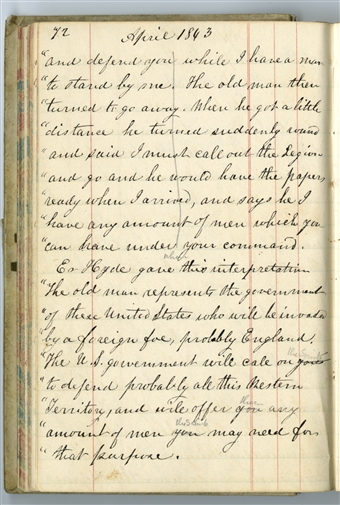 72 April 1843
"and defend you while I have a man
"to stand by me. The old man then
"turned to go away. When he got a little
"distance he turned suddenly round
"and said I must call out the Legion
"and go and he would have the papers
"ready when I arrived, and says he I
"have any amount of men which you
"can have under your command.
Er Hyde gave this interpretation
"The old man represents the government
"of these United States who will be invaded
"by a foreign foe, probably England.
"The U.S. government will call on you
"to defend probably all this Western
"Territory, and will offer you any
"amount of men you may need for
"that purpose.